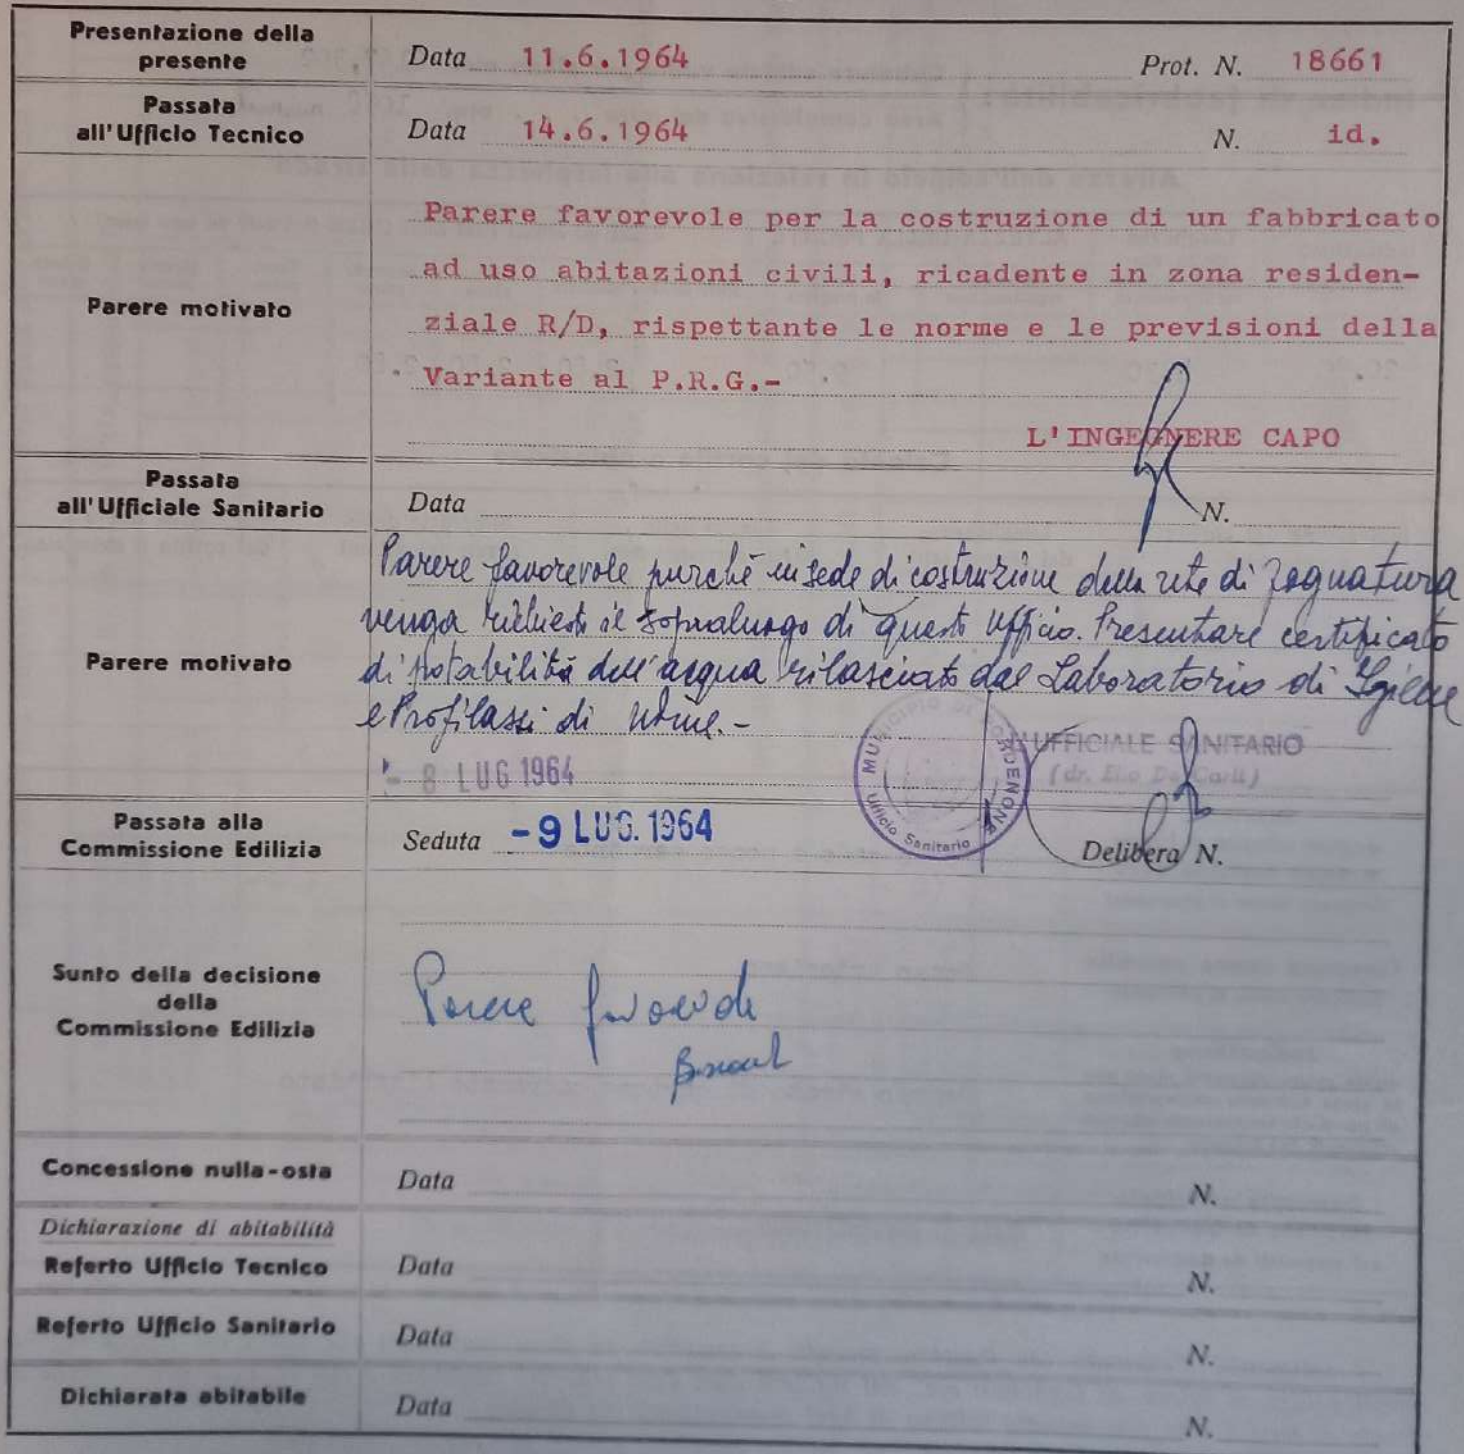 Presentazione della
presente
Data 11.6.1964 Prot. N. 18661
Passata
all'Ufficio Tecnico
Data 14.6.1964 N. id.
Parere motivato
Parere favorevole per la costruzione di un fabbricato
ad uso abitazioni civili, ricadente in zona residen-
ziale R/D, rispettante le norme e le previsioni della
Variante al P.R.G.-
L'INGEGNERE CAPO
Passata
all'Ufficiale Sanitario
Data N.
Parere motivato
Parere favorevole purchè in sede di costruzione della rete di fognatura
venga richiesto il sopraluogo di questo Ufficio. Presentare certificato
di potabilità dell'acqua rilasciato dal Laboratorio di Igiene
e Profilassi di Udine.-
- 8 LUG 1964
MUNICIPIO DI PORDENONE
Ufficio Sanitario
L'UFFICIALE SANITARIO
(dr. Elio De Carli)
Passata alla
Commissione Edilizia
Seduta -9 LUG. 1964 Delibera N.
Sunto della decisione
della
Commissione Edilizia
Parere favorevole
Concessione nulla-osta
Data N.
Dichiarazione di abitabilità
Referto Ufficio Tecnico
Data N.
Referto Ufficio Sanitario
Data N.
Dichiarata abitabile
Data N.